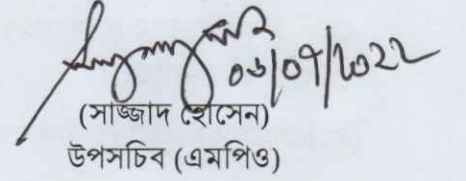 06/07/2022
(সাজ্জাদ হোসেন)
উপসচিব (এমপিও)